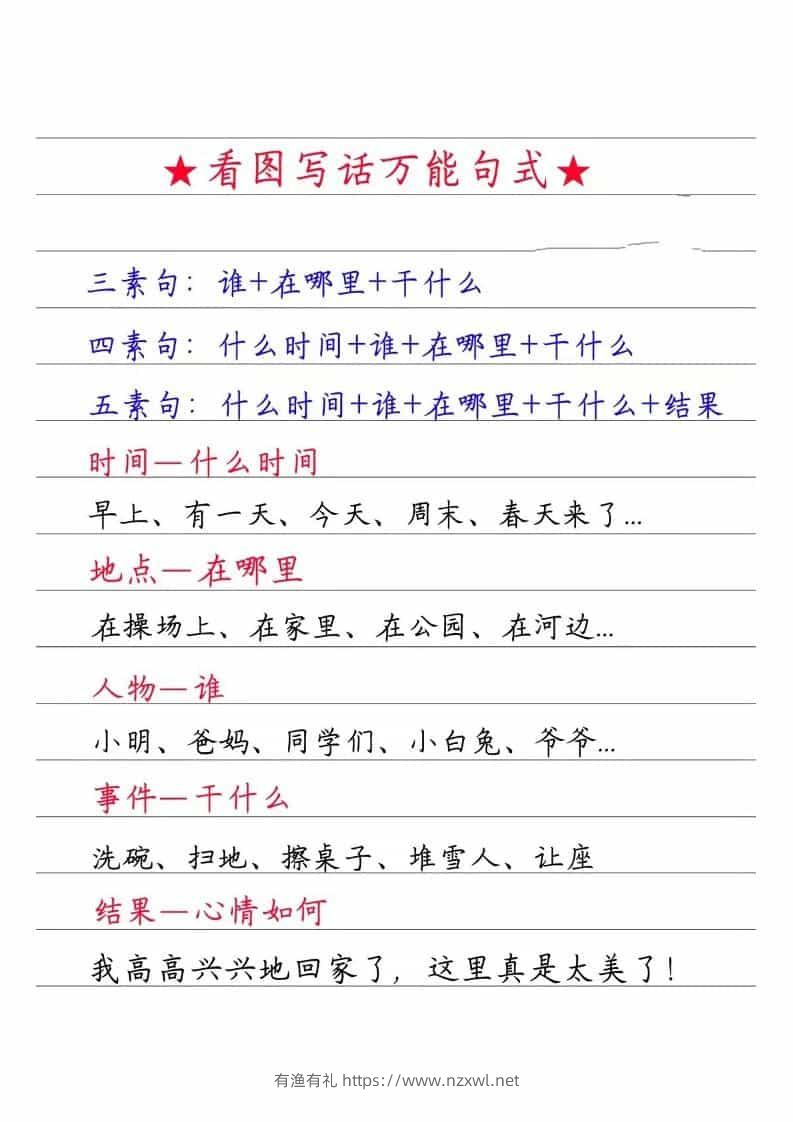 ★看图写话万能句式★
三素句：谁+在哪里+干什么
四素句：什么时间+谁+在哪里+干什么
五素句：什么时间+谁+在哪里+干什么+结果
时间—什么时间
早上、有一天、今天、周末、春天来了...
地点—在哪里
在操场上、在家里、在公园、在河边...
人物—谁
小明、爸妈、同学们、小白兔、爷爷...
事件—干什么
洗碗、扫地、擦桌子、堆雪人、让座
结果—心情如何
我高高兴兴地回家了，这里真是太美了！
有渔有礼 https://www.nzxwl.net